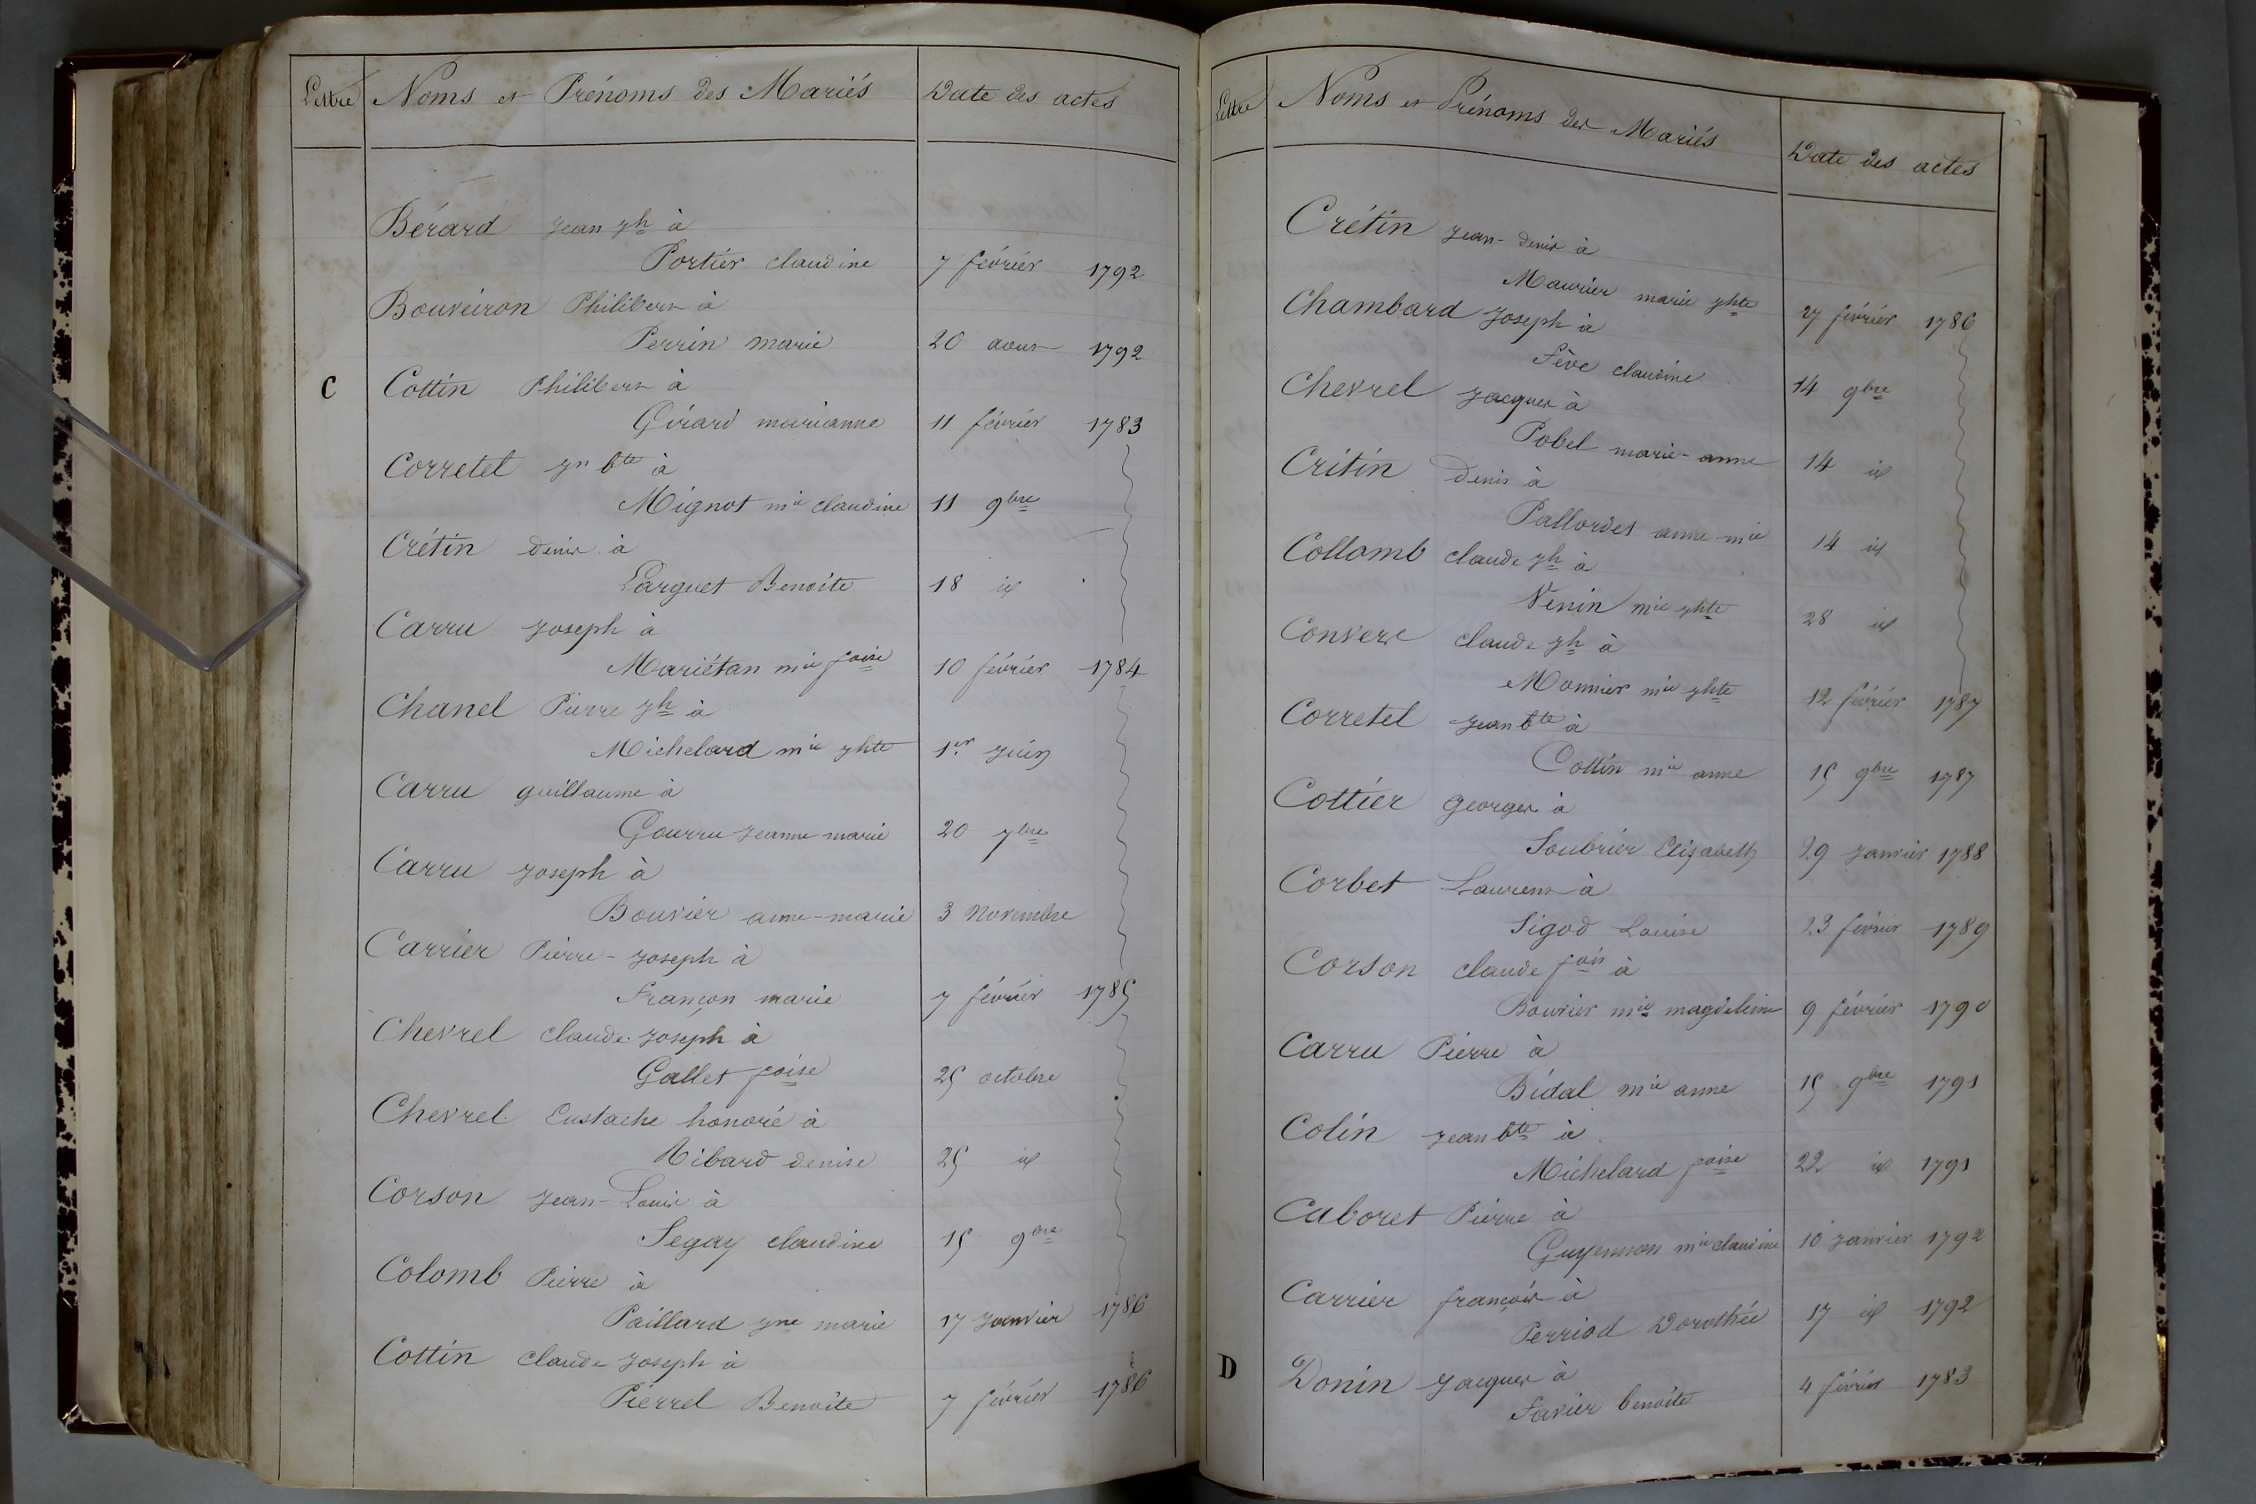 Lettre Noms et Prénoms des Mariés Date des actes
Bérard jean jh à
Portier claudine 7 février 1792
Bouveiron Philibert à
Perrin marie 20 aout 1792
C Cottin Philibert à
Girard marianne 11 février 1783
Corretel jn bte à
Mignot mie claudine 11 9bre
Crétin denis à
Parguet Benoite 18 id
Carru joseph à
Mariétan mie foise 10 février 1784
Chanel Pierre jh à
Michelard mie jhte 1er juin
Carru guillaume à
Gourru jeanne marie 20 7bre
Carru joseph à
Bouvier anne-marie 3 Novembre
Carrier Pierre-joseph à
Françon marie 7 février 1785
Chevrel claude joseph à
Gallet foise 25 octobre
Chevrel Eustache honoré à
Ribard denise 25 id
Corson jean-Louis à
Segay claudine 15 9bre
Colomb Pierre à
Paillard jne marie 17 janvier 1786
Cottin claude joseph à
Pierrel Benoite 7 février 1786
Lettre Noms et Prénoms des Mariés Date des actes
Crétin jean-denis à
Maurier marie jhte 27 février 1786
Chambard joseph à
Fève claudine 14 9bre
Chevrel jacques à
Pobel marie-anne 14 id
Crétin Denis à
Pallordet anne mie 14 id
Collomb claude jh à
Venin mie jhte 28 id
Convers claude jh à
Monnier mie jhte 12 février 1787
Corretel jean bte à
Cottin mie anne 15 9bre 1787
Cottier georges à
Soubrier Elisabeth 29 janvier 1788
Corbet Laurent à
Sigod Louise 23 février 1789
Corson claude fois à
Bouvier mie magdeleine 9 février 1790
Carru Pierre à
Bidal mie anne 15 9bre 1791
Colin jean bte à
Michelard foise 22 id 1791
Caboret Pierre à
Guyennon mie claudine 10 janvier 1792
Carrier françois à
Perriod Dorothée 17 id 1792
D Donin jacques à
Favier benoite 4 février 1783